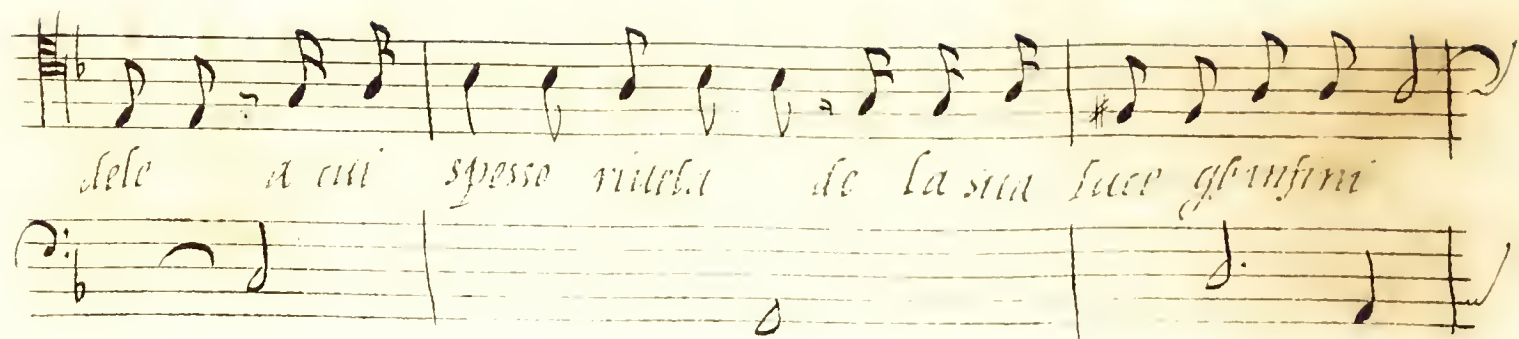 dele a cui spesso riuela de la sua luce gl'infini